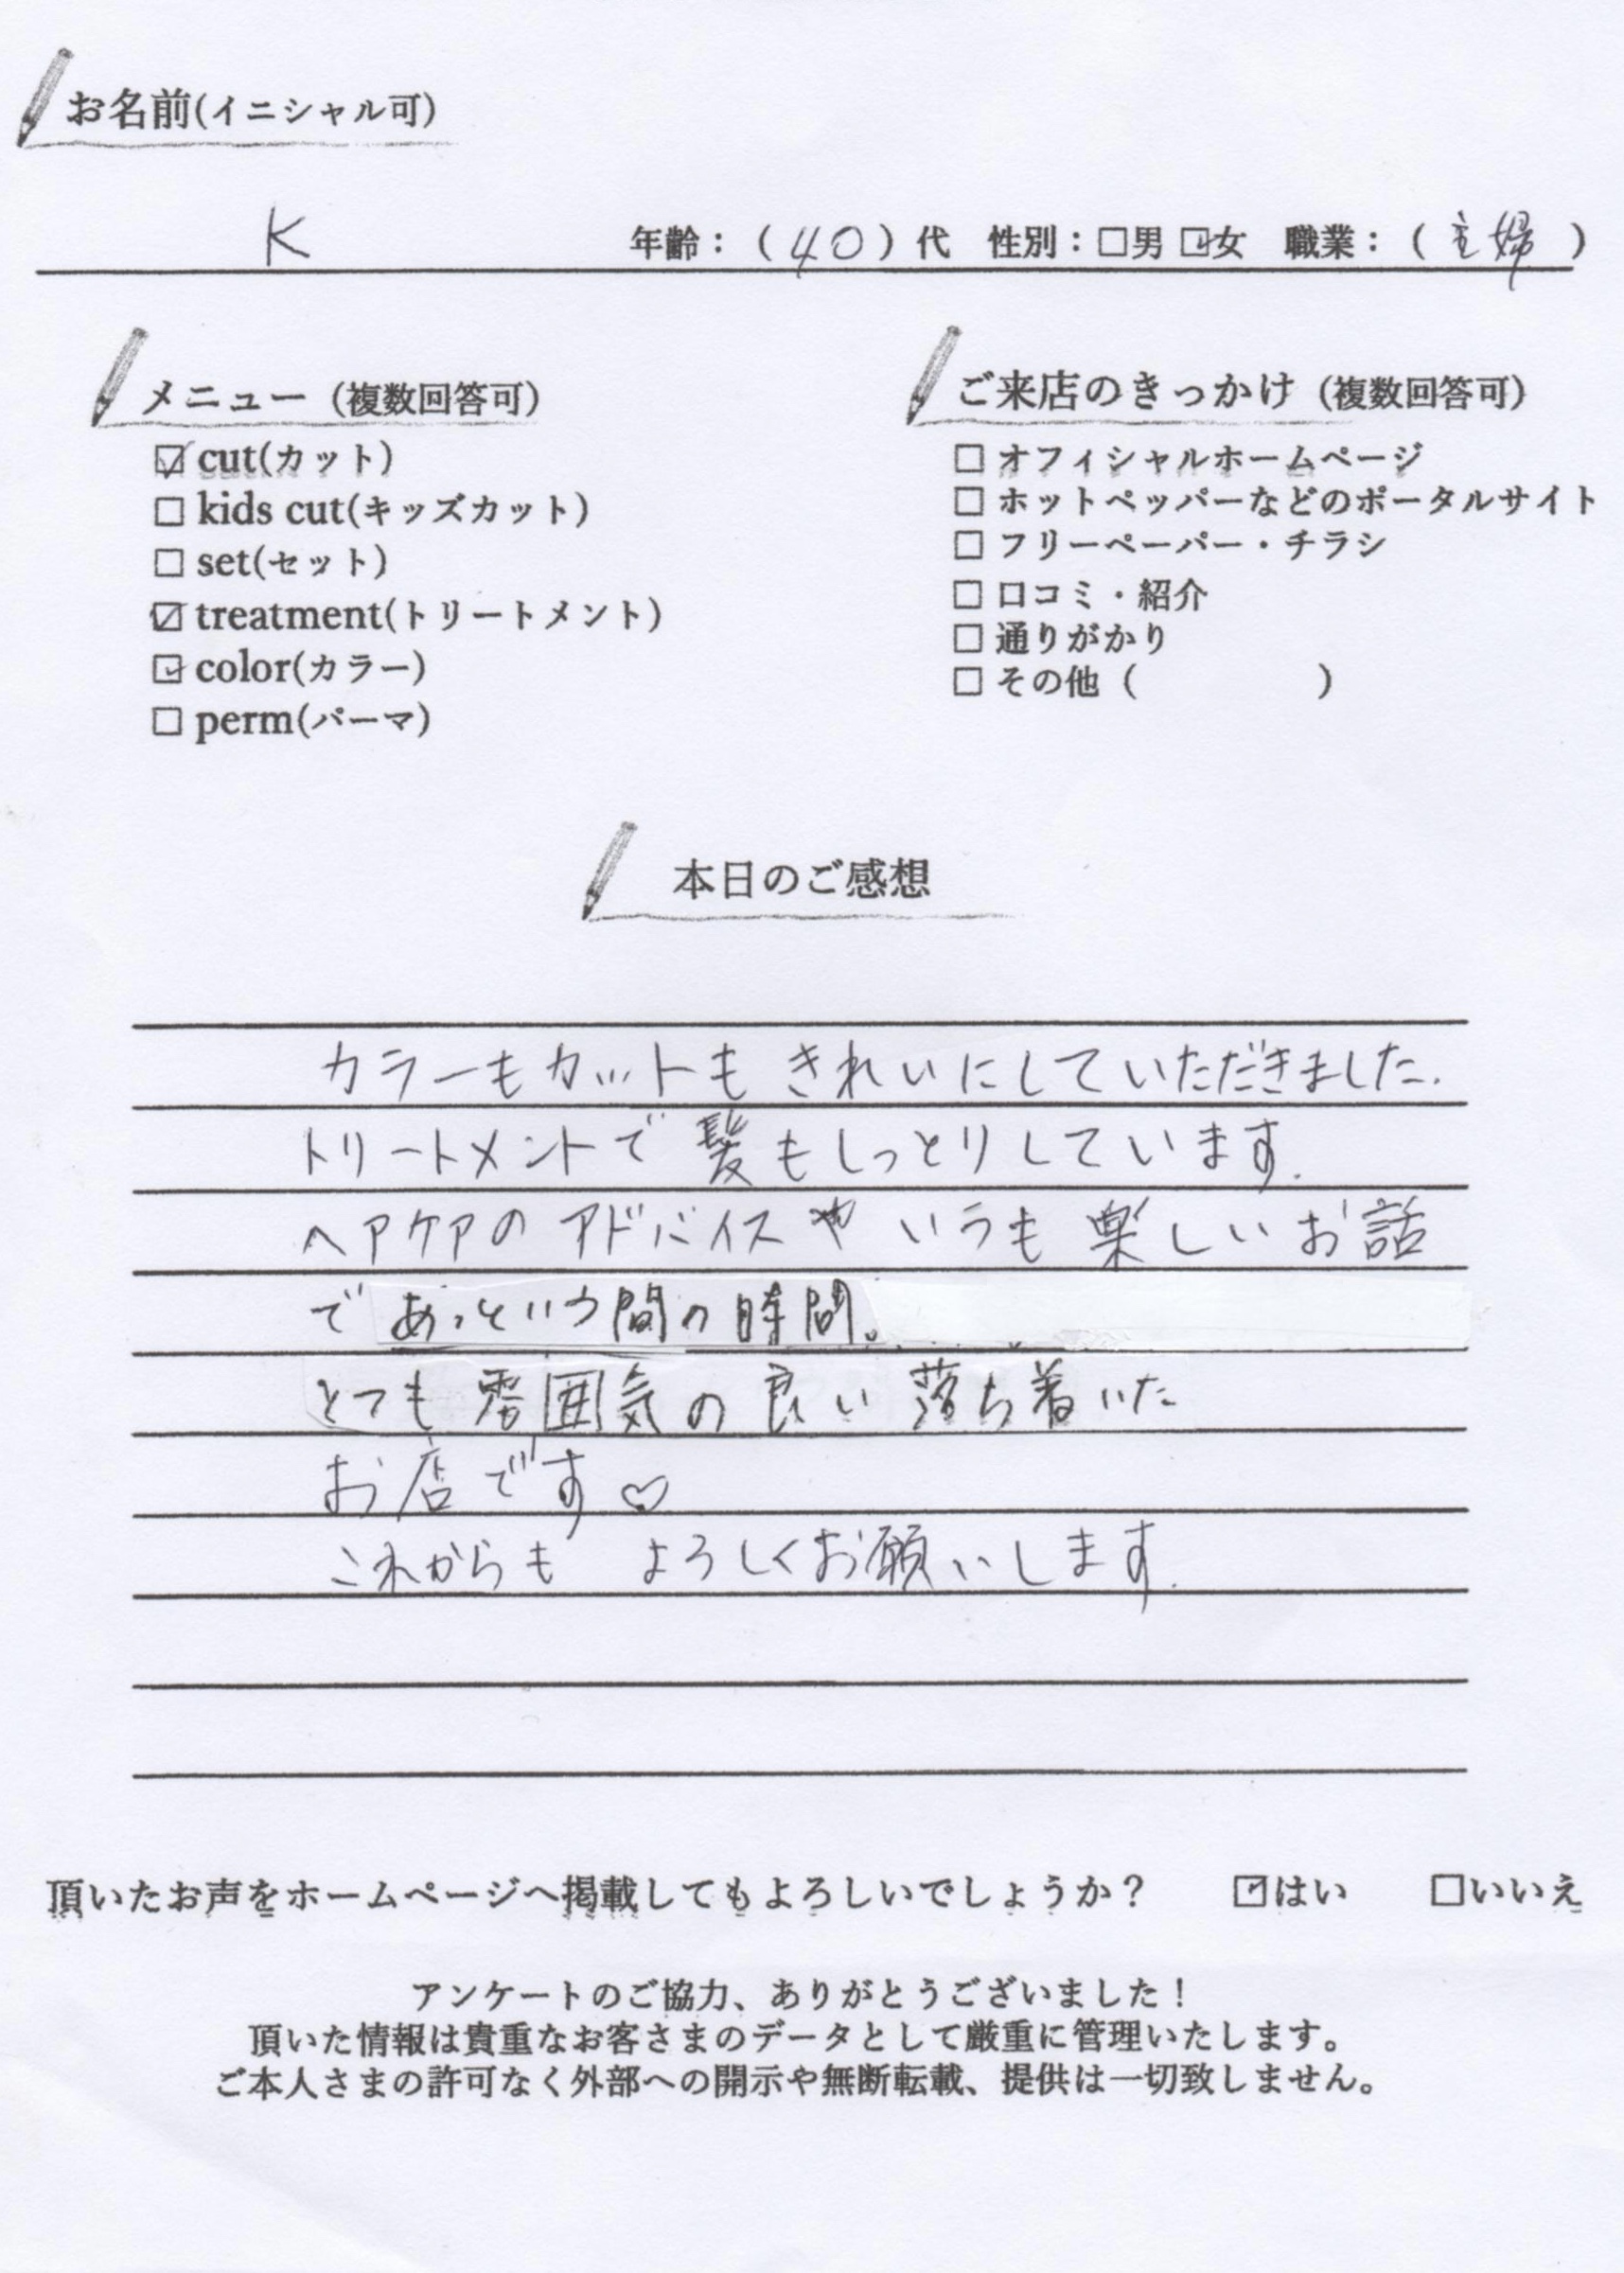 お名前(イニシャル可)
K 年齢：（40）代 性別：□男 ☑女 職業：（主婦）
メニュー（複数回答可）
☑ cut(カット)
□ kids cut(キッズカット)
□ set(セット)
☑ treatment(トリートメント)
☑ color(カラー)
□ perm(パーマ)
ご来店のきっかけ（複数回答可）
□ オフィシャルホームページ
□ ホットペッパーなどのポータルサイト
□ フリーペーパー・チラシ
□ 口コミ・紹介
□ 通りがかり
□ その他（　　　　　）
本日のご感想
カラーもカットもきれいにしていただきました.
トリートメントで髪もしっとりしています.
ヘアケアのアドバイスや いつも楽しいお話
であっという間の時間。
とても雰囲気の良い落ち着いた
お店です♡
これからも よろしくお願いします.
頂いたお声をホームページへ掲載してもよろしいでしょうか？ ☑はい □いいえ
アンケートのご協力、ありがとうございました！
頂いた情報は貴重なお客さまのデータとして厳重に管理いたします。
ご本人さまの許可なく外部への開示や無断転載、提供は一切致しません。